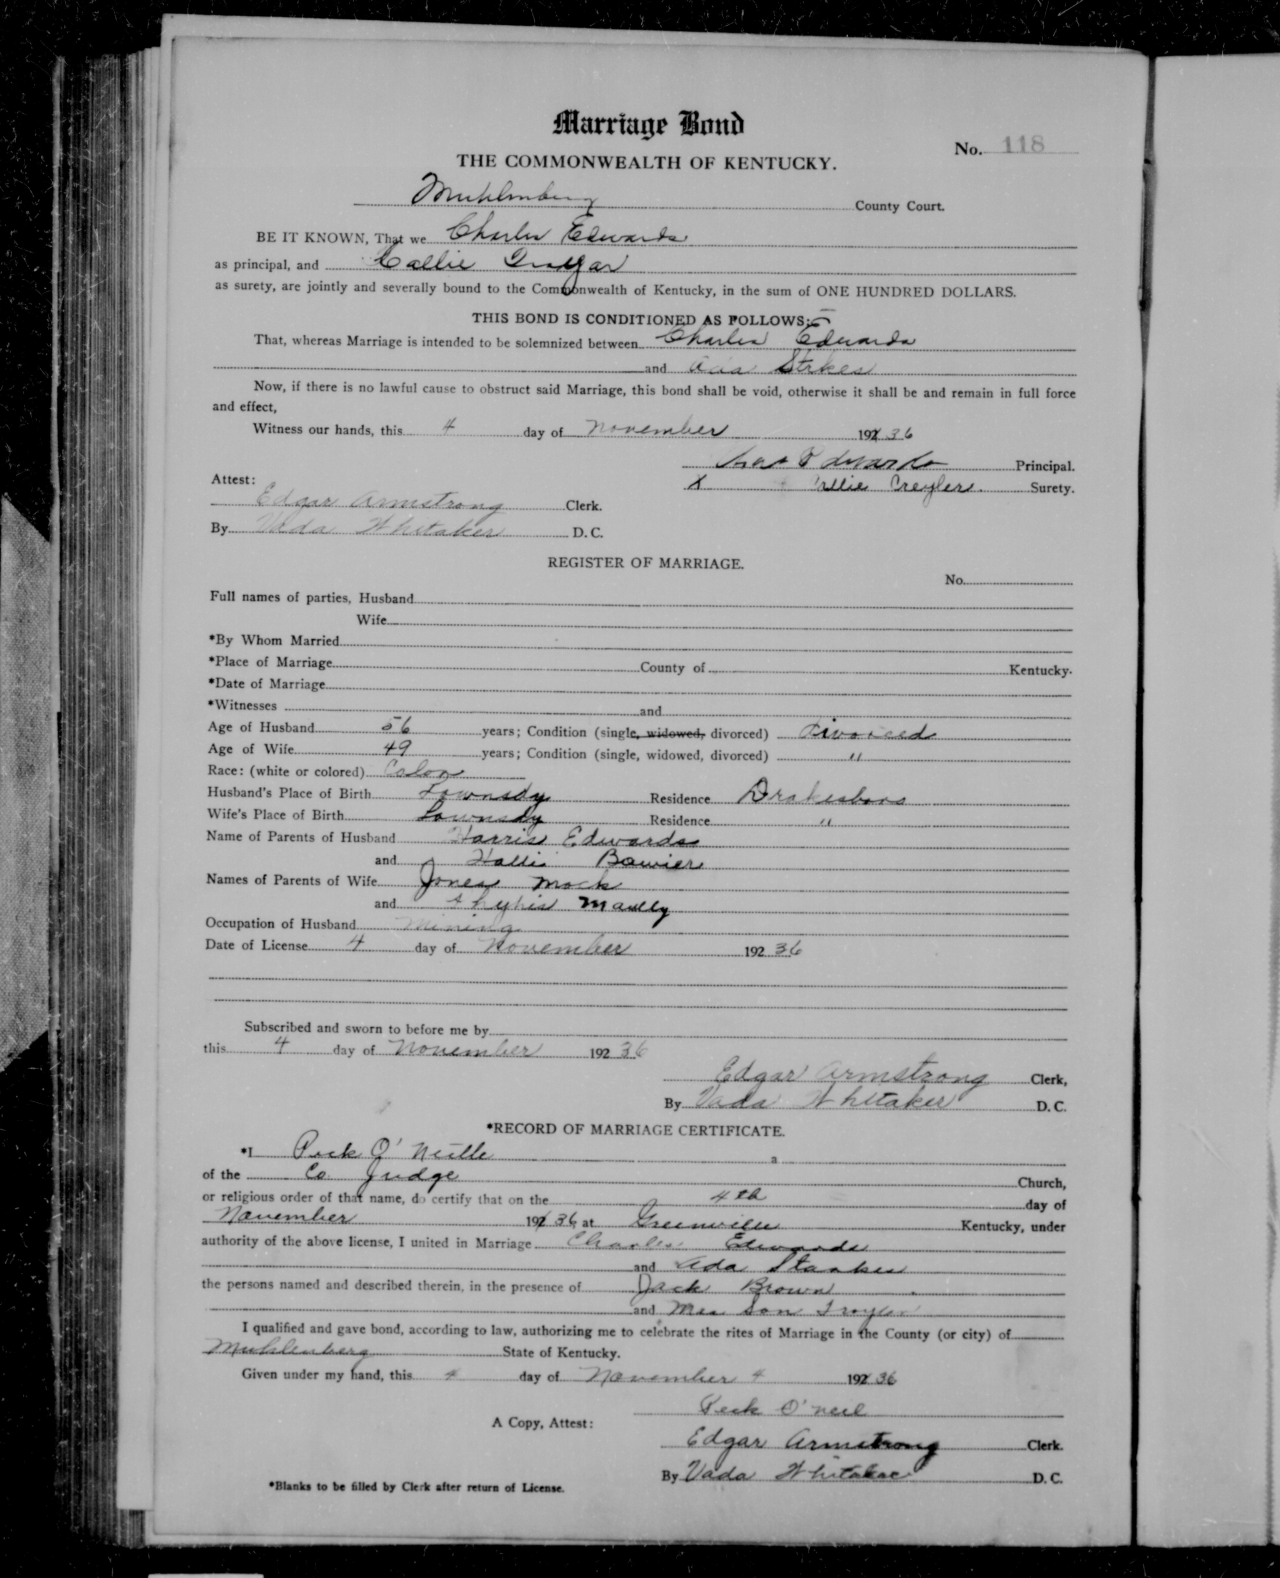 Marriage Bond
No. 118
THE COMMONWEALTH OF KENTUCKY.
Muhlenberg County Court.
BE IT KNOWN, That we Charles Edwards
as principal, and Callie
as surety, are jointly and severally bound to the Commonwealth of Kentucky, in the sum of ONE HUNDRED DOLLARS.
THIS BOND IS CONDITIONED AS FOLLOWS:
That, whereas Marriage is intended to be solemnized between Charles Edwards
and Ada Stokes
Now, if there is no lawful cause to obstruct said Marriage, this bond shall be void, otherwise it shall be and remain in full force
and effect,
Witness our hands, this 4 day of November 1936
Chas Edwards Principal.
Attest: X Callie Surety.
Edgar Armstrong Clerk.
By Vada Whitaker D. C.
REGISTER OF MARRIAGE.
No.
Full names of parties, Husband
Wife
*By Whom Married
*Place of Marriage County of Kentucky.
*Date of Marriage
*Witnesses and
Age of Husband 56 years; Condition (single, widowed, divorced) Divorced
Age of Wife 49 years; Condition (single, widowed, divorced) "
Race: (white or colored) Colon
Husband's Place of Birth Residence Drakesboro
Wife's Place of Birth Residence "
Name of Parents of Husband Harris Edwards
and Hallie
Names of Parents of Wife Jones Mock
and
Occupation of Husband Mining
Date of License 4 day of November 192 36
Subscribed and sworn to before me by
this 4 day of November 192 36
Edgar Armstrong Clerk,
By Vada Whitaker D. C.
*RECORD OF MARRIAGE CERTIFICATE.
*I Peck O'Neille a
of the Co Judge Church,
or religious order of that name, do certify that on the 4th day of
November 1936 at Greenville Kentucky, under
authority of the above license, I united in Marriage Charles Edwards
and Ada Stankes
the persons named and described therein, in the presence of Jack Brown
and Mrs Son
I qualified and gave bond, according to law, authorizing me to celebrate the rites of Marriage in the County (or city) of
Muhlenberg State of Kentucky.
Given under my hand, this 4 day of November 4 192 36
Peck O'neil
A Copy, Attest:
Edgar Armstrong Clerk.
By Vada Whitaker D. C.
*Blanks to be filled by Clerk after return of License.